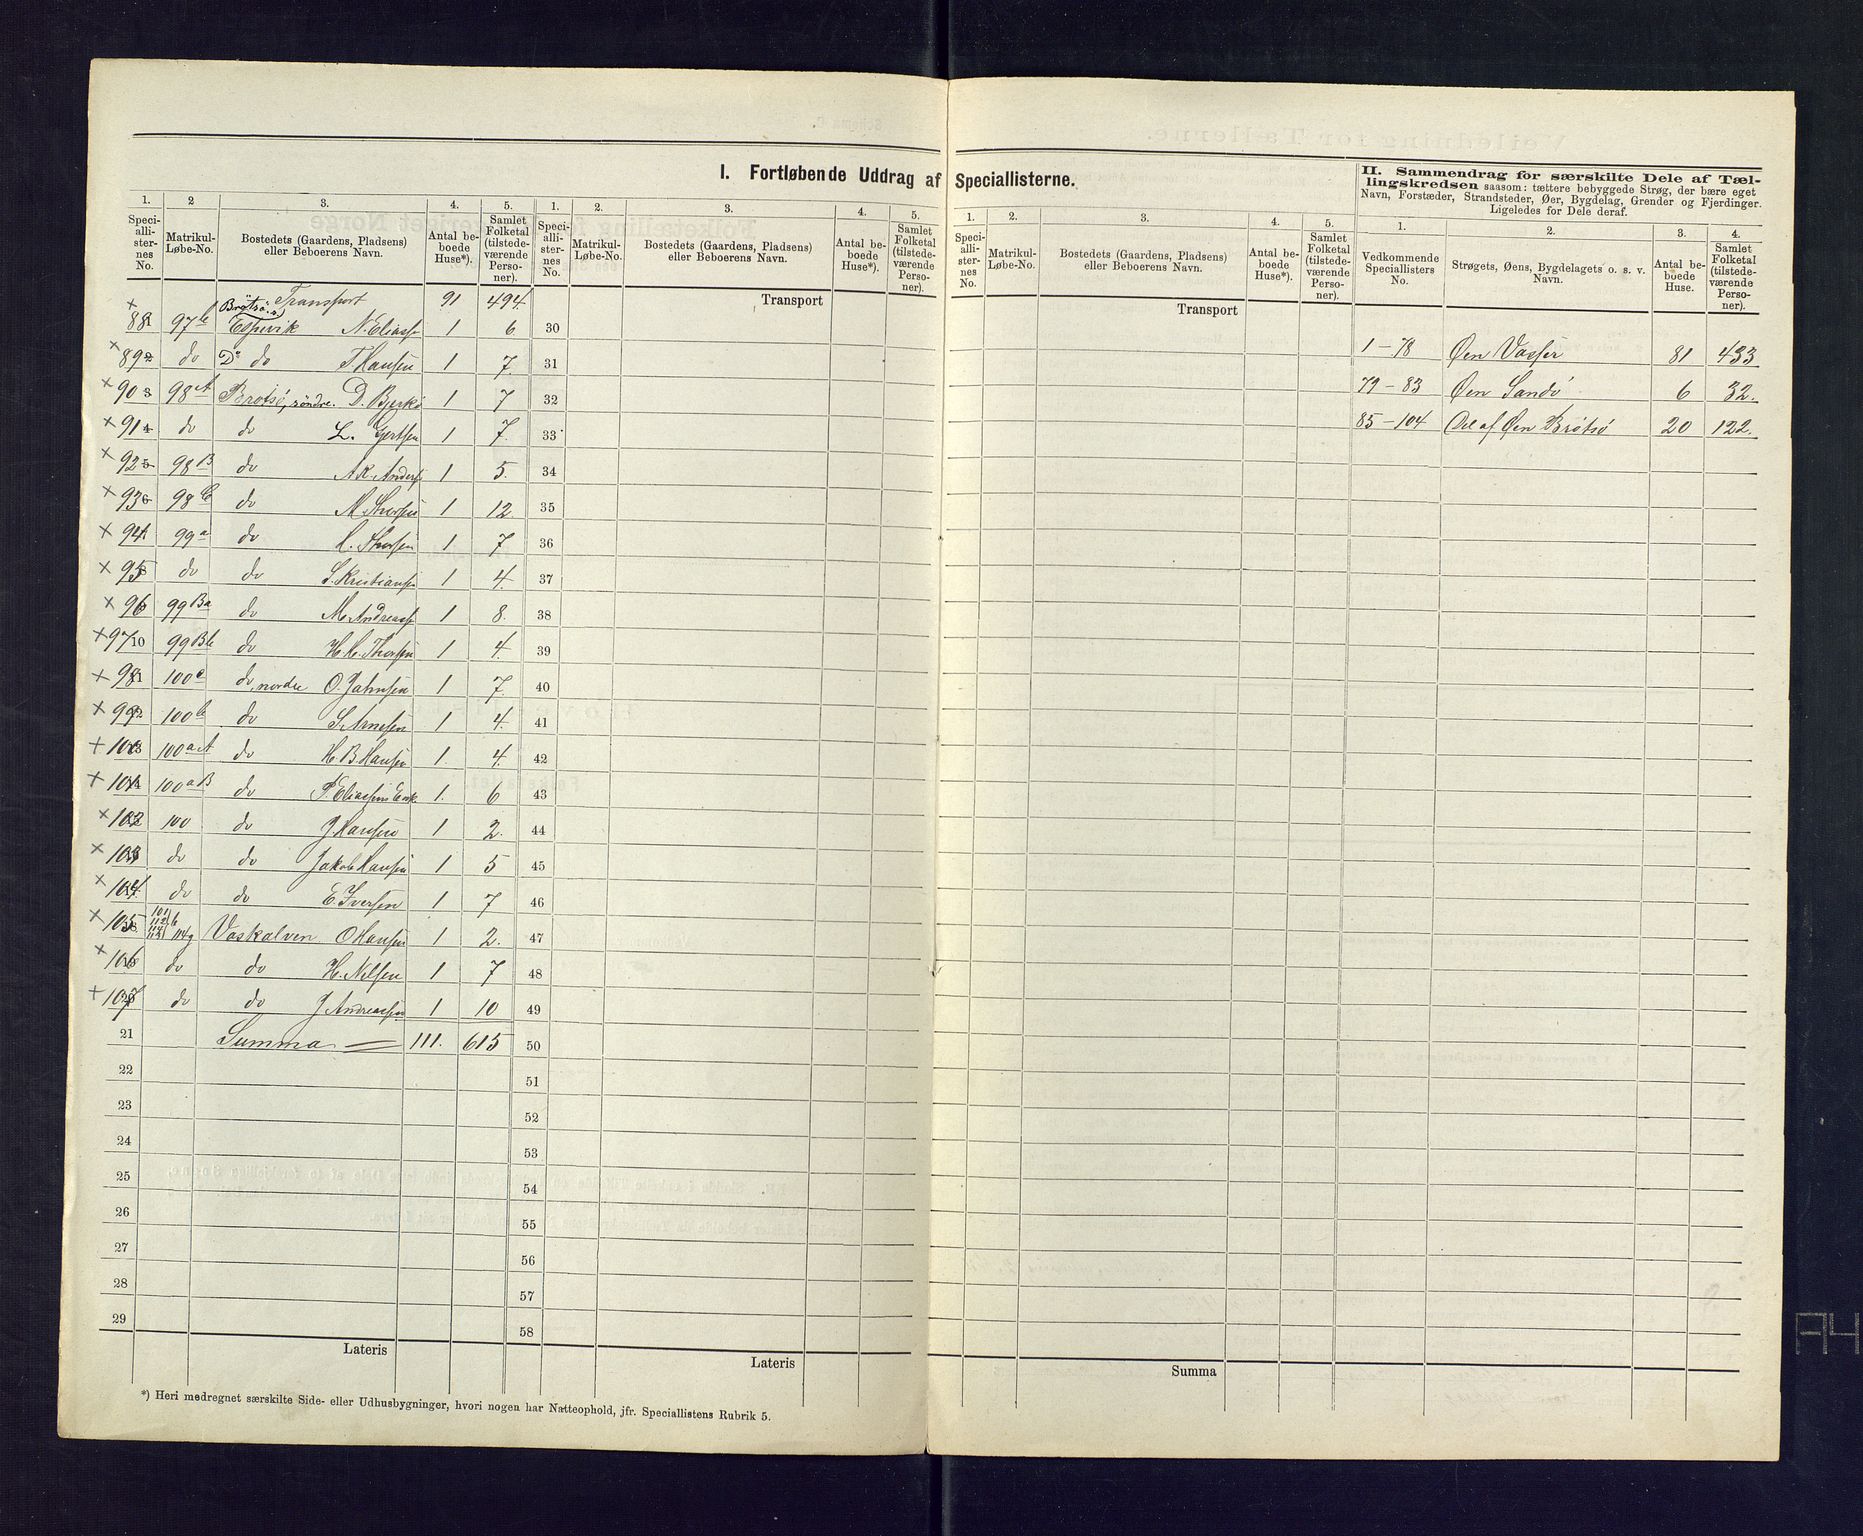 I. Fortløbende Uddrag af Speciallisterne.
1. 2 3. 4. 5. 1. 2. 3. 4. 5.
Speci-allister-nes No. Matrikul-Løbe-No. Bostedets (Gaardens, Pladsens) eller Beboerens Navn. Antal be-boede Huse*). Samlet Folketal (tilstede-værende Perso-ner). Speci-allister-nes No. Matrikul-Løbe-No. Bostedets (Gaardens, Pladsens) eller Beboerens Navn. Antal be-boede Huse*). Samlet Folketal (tilstede-værende Perso-ner).
Transport 91 494. Transport
88 97b Brötsö Espevik N. Eliass 1 6 30
89 do Do do T Hansen 1 7. 31
90 98A Brötsö, söndre. D. Bjerkö 1 7 32
91 do do L. Gertsen 1 7. 33
92 98B do A K. Anders 1 5. 34
93 98C do M. Thorsen 1 12. 35
94 99a do L. Thorsen 1 7 36
95 do do S. Kristiansen 1 4. 37
96 99Ba do M. Andreass 1 8. 38
97 99Bb do H. M. Thorsen 1 4. 39
98 100c do, nordre O. Jahnsen 1 7. 40
99 100b do S. Arnesen 1 4. 41
100 100aA do H. B Hansen 1 4. 42
101 100aB do P. Eliassens Enk 1. 6 43
102 100 do J Hansen 1 2. 44
103 do do Jakob Hansen 1 5 45
104 do do E. Iversen 1 7 46
105 101 112 114 b 114g Vaskalven O Hansen 1 2. 47
106 do do H. Nilsen 1 7 48
107 do do J Andreassen 1 10 49
21 Summa 111. 615 50
22 51
23 52
24 53
25 54
26 55
27 56
28 57
29 58
Lateris Lateris
*) Heri medregnet særskilte Side- eller Udhusbygninger, hvori nogen har Natteophold, jfr. Speciallistens Rubrik 5.
1. 2. 3. 4. 5.
Speci-allister-nes No. Matrikul-Løbe-No. Bostedets (Gaardens, Pladsens) eller Beboerens Navn. Antal be-boede Huse*). Samlet Folketal (tilstede-værende Perso-ner).
Transport
Summa
II. Sammendrag for særskilte Dele af Tæl-
lingskredsen saasom: tættere bebyggede Strøg, der bære eget
Navn, Forstæder, Strandsteder, Øer, Bygdelag, Grender og Fjerdinger.
Ligeledes for Dele deraf.
1. 2. 3. 4.
Vedkommende Speciallisters No. Strøgets, Øens, Bygdelagets o. s. v. Navn. Antal be-boede Huse. Samlet Folketal (tilstede-værende Perso-ner).
1 - 78 Øen Vasser 81 433
79 - 83 Øen Sandö 6 32.
85 - 104 Del af Øen Brötsö 20 122.